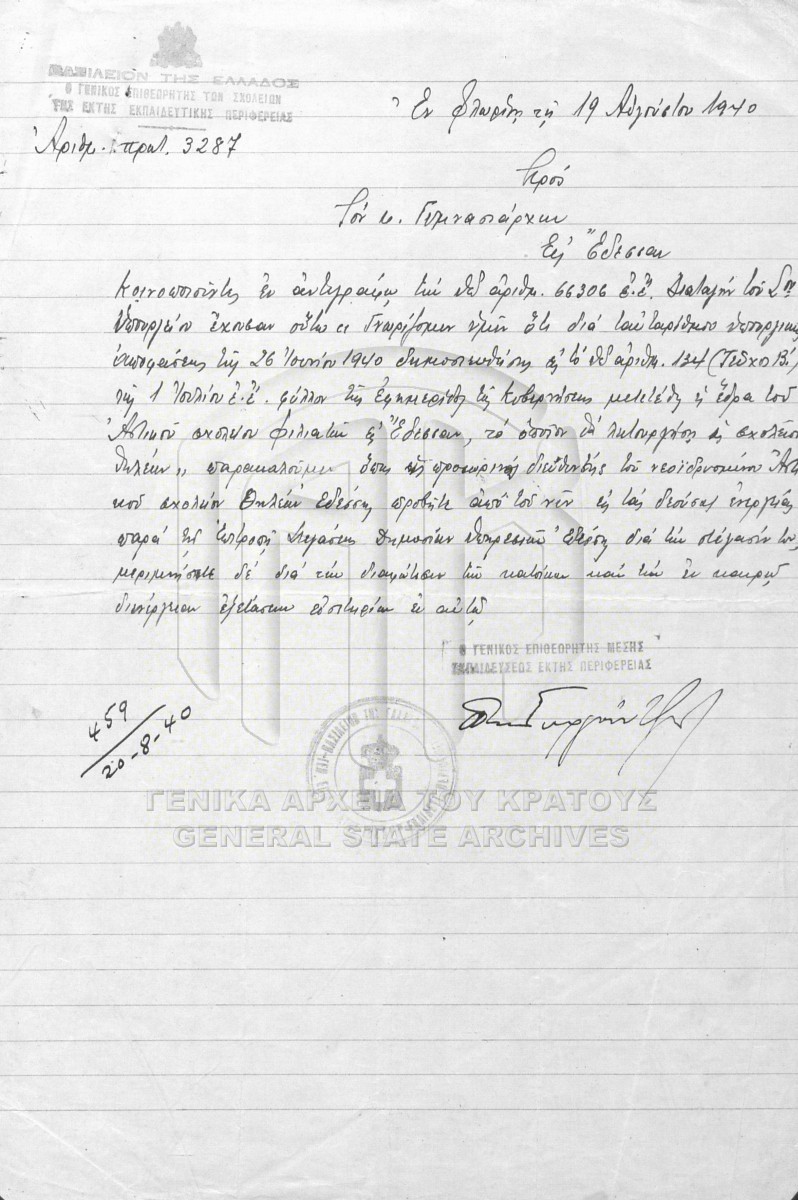 ΒΑΣΙΛΕΙΟΝ ΤΗΣ ΕΛΛΑΔΟΣ
Ο ΓΕΝΙΚΟΣ ΕΠΙΘΕΩΡΗΤΗΣ ΤΩΝ ΣΧΟΛΕΙΩΝ
ΤΗΣ ΕΚΤΗΣ ΕΚΠΑΙΔΕΥΤΙΚΗΣ ΠΕΡΙΦΕΡΕΙΑΣ
Ἐν Φλωρίνῃ τῇ 19 Αὐγούστου 1940
Ἀριθμ. πρωτ. 3287
Πρός
Τόν κ. Γυμνασιάρχην
Εἰς Ἔδεσσαν
Κοινοποιοῦντες ἐν ἀντιγράφῳ τήν ὑπ' ἀριθμ. 66306 ἐ.ἔ. Διαταγήν τοῦ Σοῦ
Ὑπουργείου ἔχουσαν οὕτω " Γνωρίζομεν ὑμῖν ὅτι διά ταυταρίθμου ὑπουργικῆς
ἀποφάσεως τῆς 26 Ἰουνίου 1940 δημοσιευθείσης εἰς τό ὑπ' ἀριθμ. 134 (Τεῦχος Β')
τῆς 1 Ἰουλίου ἐ.ἔ. φύλλον τῆς Ἐφημερίδος τῆς Κυβερνήσεως μετετέθη ἡ ἕδρα τοῦ
Ἀστικοῦ σχολείου Φιλιατῶν εἰς Ἔδεσσαν, τό ὁποῖον θά λειτουργήσῃ ὡς σχολεῖον
θηλέων" παρακαλοῦμεν ὅπως ὡς προσωρινός διευθυντής τοῦ νεοϊδρυομένου Ἀστι
κοῦ σχολείου Θηλέων Ἐδέσσης προβῆτε ἀπό τοῦ νῦν εἰς τάς δεούσας ἐνεργείας
παρά τῇ Ἐπιτροπῇ Στεγάσεως Δημοσίων Ὑπηρεσιῶν Ἐδέσσης διά τήν στέγασίν του,
μεριμνήσητε δέ διά τήν διαφώτισιν τῶν κατοίκων καί τήν ἐν καιρῷ
διενέργειαν ἐξετάσεων εἰσιτηρίων ἐν αὐτῷ
Ο ΓΕΝΙΚΟΣ ΕΠΙΘΕΩΡΗΤΗΣ ΜΕΣΗΣ
ΕΚΠΑΙΔΕΥΣΕΩΣ ΕΚΤΗΣ ΠΕΡΙΦΕΡΕΙΑΣ
459
20-8-40
ΓΕΝΙΚΑ ΑΡΧΕΙΑ ΤΟΥ ΚΡΑΤΟΥΣ
GENERAL STATE ARCHIVES